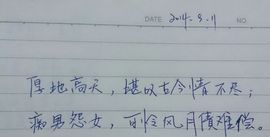 DATE 2014.9.11 NO
厚地高天，堪叹古今情不尽；
痴男怨女，可令风月债难偿。